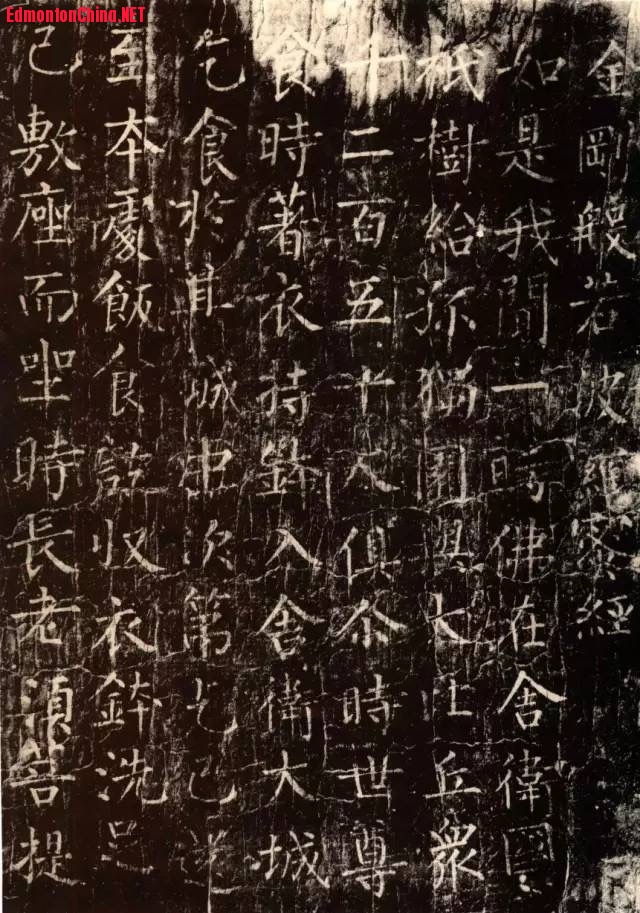 EdmontonChina.NET
金剛般若波羅蜜經
如是我聞一時佛在舍衛國
祇樹給孤獨園與大比丘眾
千二百五十人俱尒時世尊
食時著衣持鉢入舍衛大城
乞食於其城中次第乞已還
至本處飯食訖收衣鉢洗足
已敷座而坐時長老須菩提